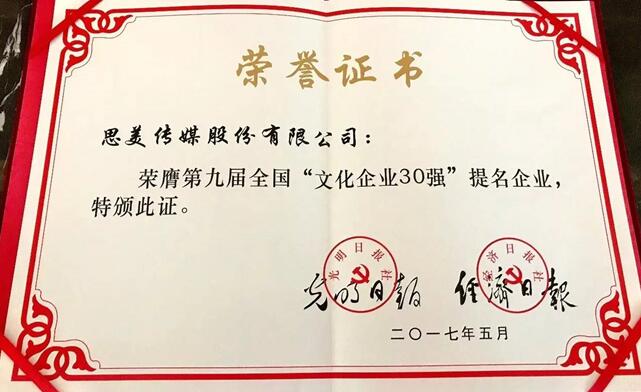 荣誉证书
思美传媒股份有限公司：
荣膺第九届全国“文化企业30强”提名企业，
特颁此证。
光明日报社
经济日报社
光明日报 经济日報
二〇一七年五月